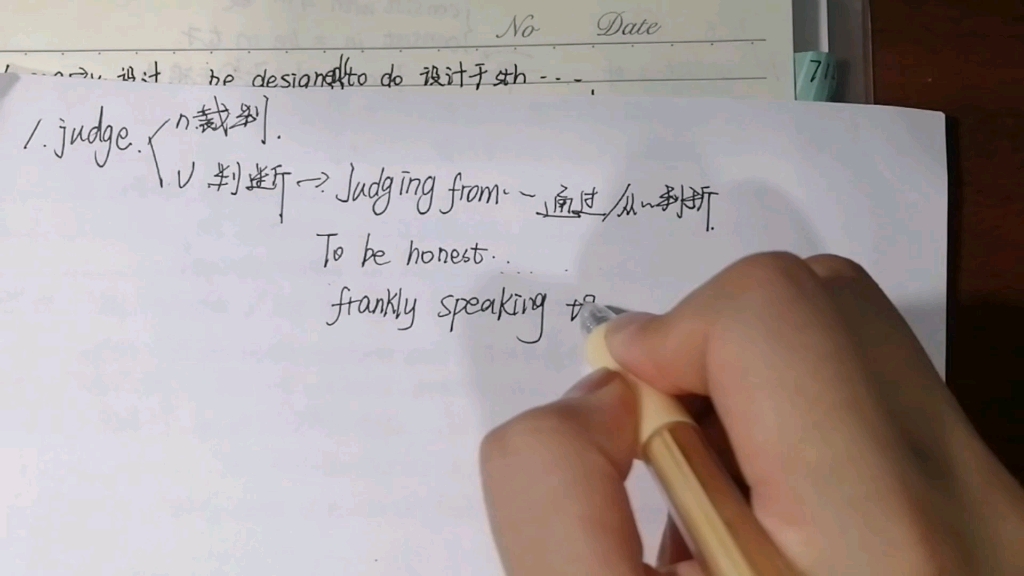 No Date
设计 be designed to do 设计于 sth ....
1. judge. n 裁判.
v 判断 → Judging from... 通过/从~判断.
To be honest.....
frankly speaking